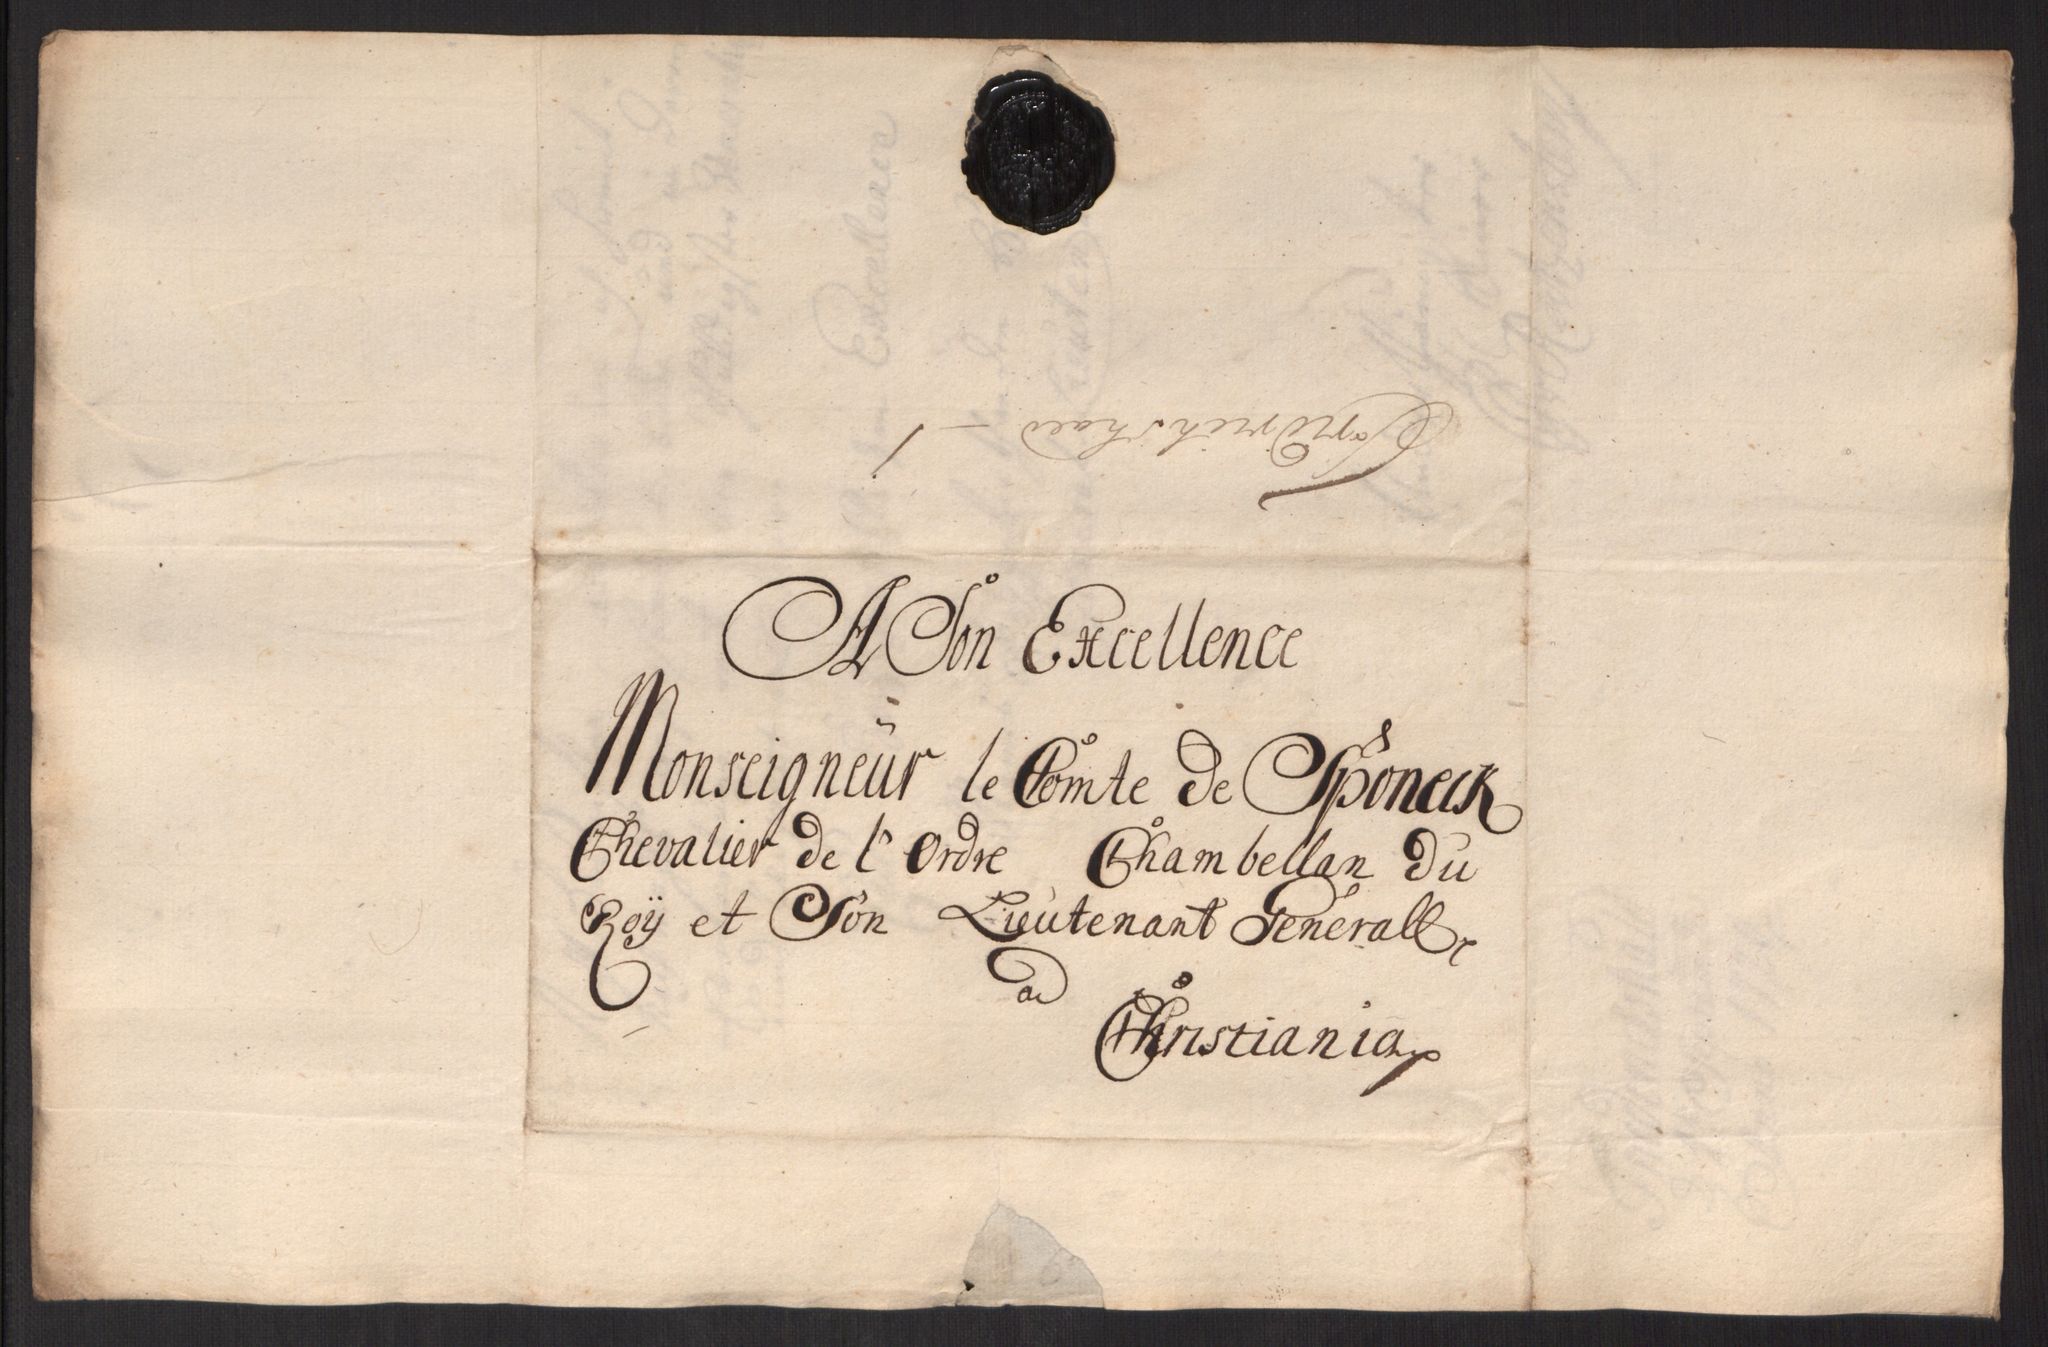 Fridrichshald
A Son Excellence
Monseigneur le Comte de Sponeck
Chevalier de l'Ordre Chambellan du
Roÿ et Son Lieutenant Generall
a
Christiania